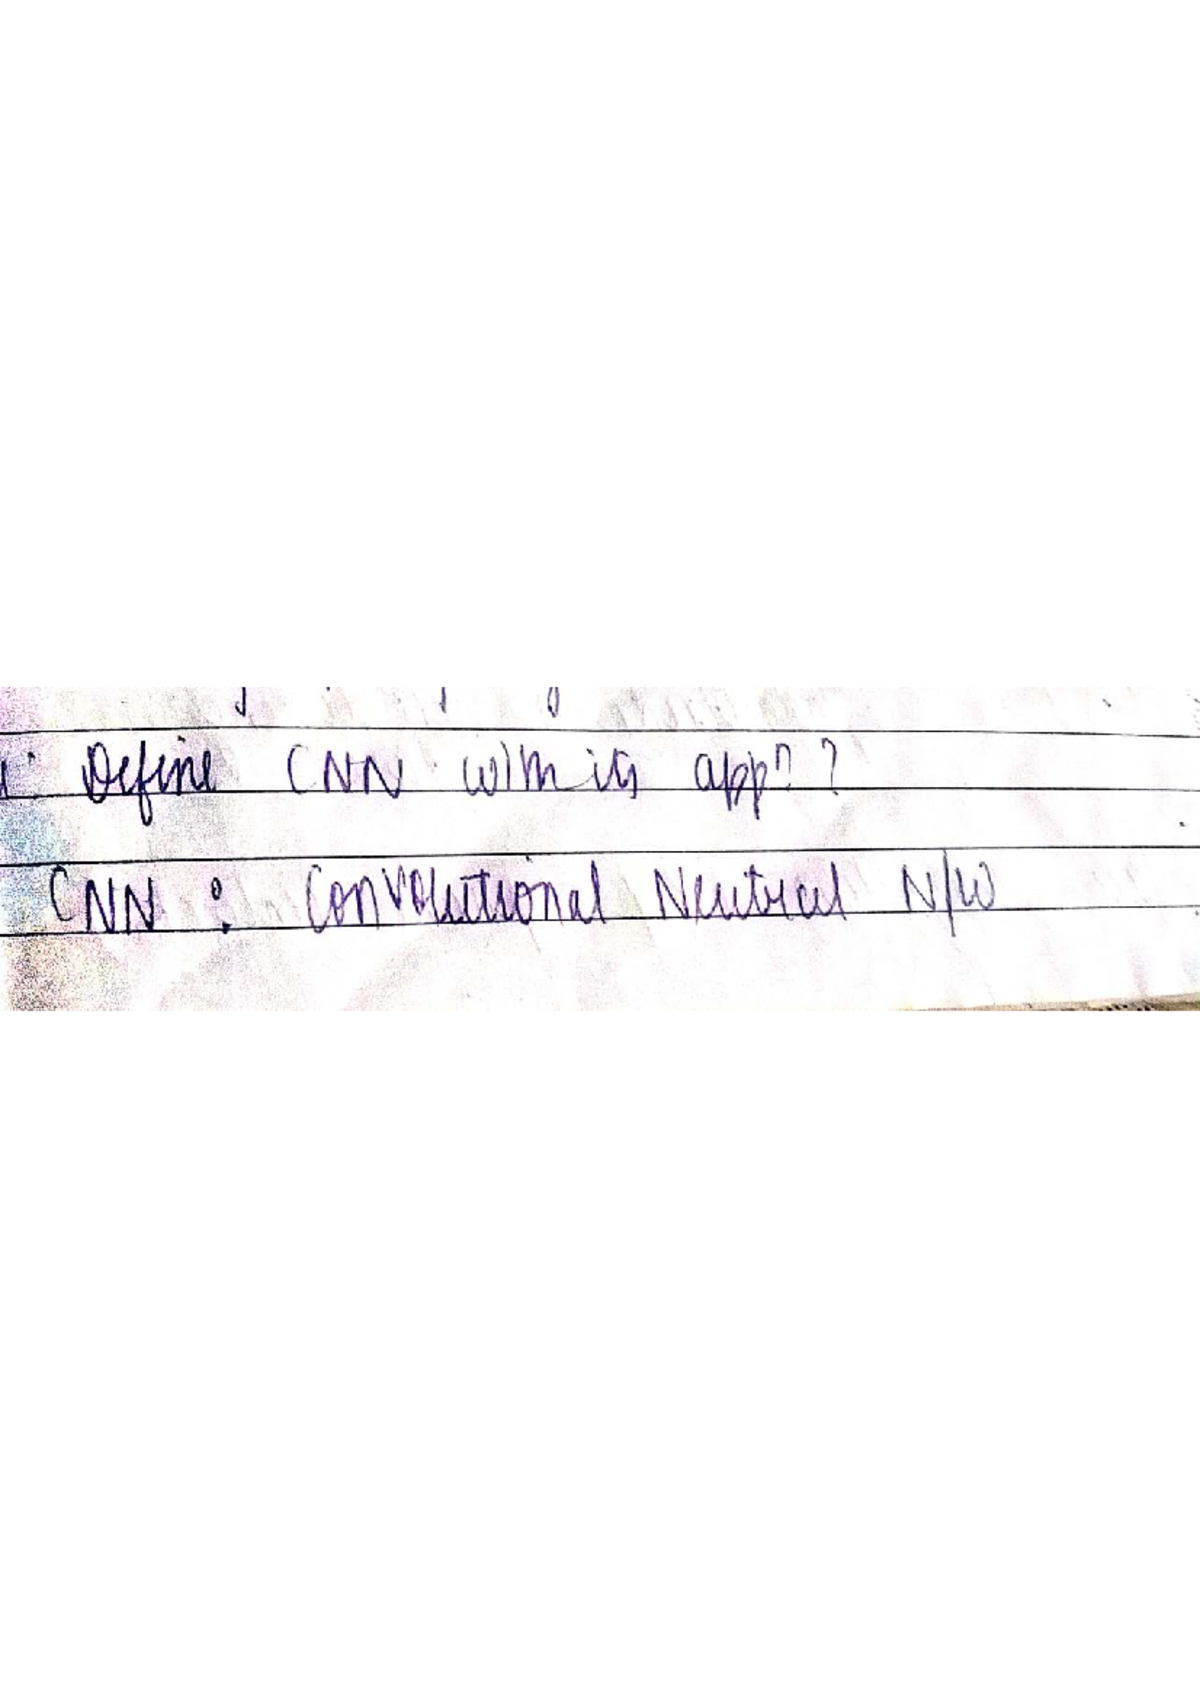 Define CNN with its appn?
CNN : Convolutional Neutral N/W